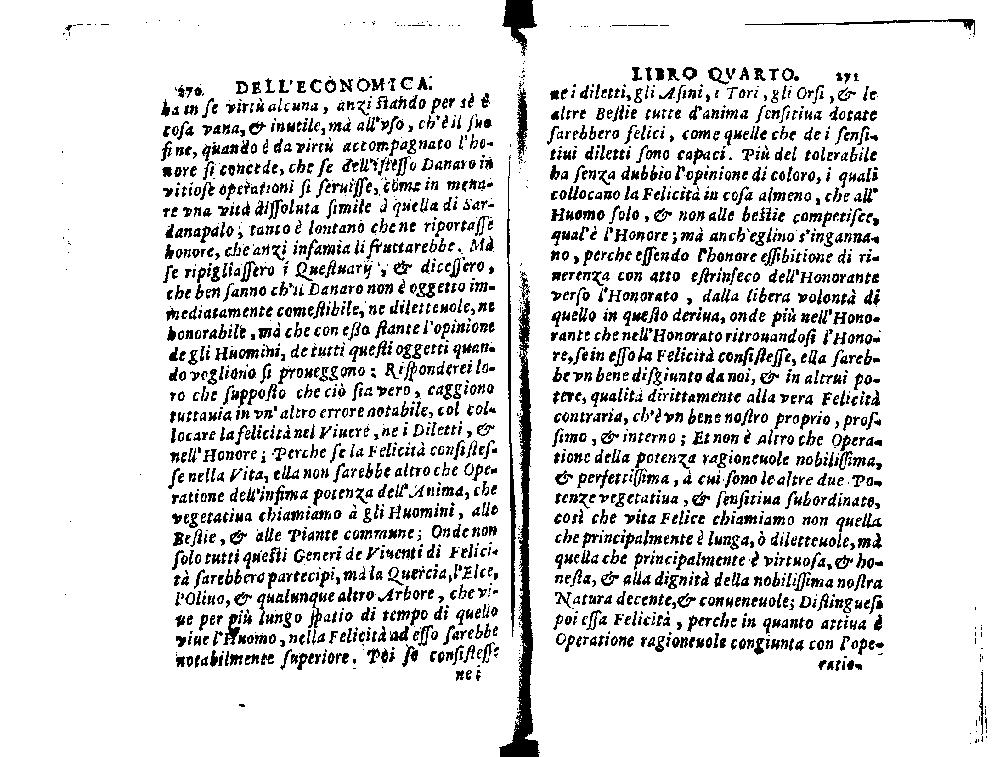 270. DELL'ECONOMICA.
ha in se virtù alcuna, anzi stando per sè è
cosa vana, & inutile, mà all'vso, ch'è il suo
fine, quando è da virtù accompagnato l'ho-
nore si concede, che se dell'istesso Danaro in
vitiose operationi si seruisse, come in mena-
re vna vita dissoluta simile à quella di Sar-
danapalo, tanto è lontano che ne riportasse
honore, che anzi infamia li fruttarebbe. Mà
se ripigliassero i Questuarij, & dicessero,
che ben sanno ch'il Danaro non è oggetto im-
mediatamente comestibile, ne diletteuole, ne
honorabile, mà che con esso stante l'opinione
de gli Huomini, de tutti questi oggetti quan-
do vogliono si proueggono: Risponderei lo-
ro che supposto che ciò sia vero, caggiono
tuttauia in vn' altro errore notabile, col col-
locare la felicità nel Viuere, ne i Diletti, &
nell'Honore; Perche se la Felicità consistes-
se nella Vita, ella non sarebbe altro che Ope-
ratione dell'infima potenza dell'Anima, che
vegetatiua chiamiamo à gli Huomini, alle
Bestie, & alle Piante commune; Onde non
solo tutti questi Generi de Viuenti di Felici-
tà sarebbero partecipi, mà la Quercia, l'Elce,
l'Oliuo, & qualunque altro Arbore, che vi-
ue per più lungo spatio di tempo di quello
viue l'Huomo, nella Felicità ad esso sarebbe
notabilmente superiore. Poi se consistesse
ne i
LIBRO QVARTO. 271
ne i diletti, gli Asini, i Tori, gli Orsi, & le
altre Bestie tutte d'anima sensitiua dotate
sarebbero felici, come quelle che de i sensi-
tiui diletti sono capaci. Più del tolerabile
ha senza dubbio l'opinione di coloro, i quali
collocano la Felicità in cosa almeno, che all'
Huomo solo, & non alle bestie competisce,
qual'è l'Honore; mà anch'eglino s'inganna-
no, perche essendo l'honore essibitione di ri-
uerenza con atto estrinseco dell'Honorante
verso l'Honorato, dalla libera volontà di
quello in questo deriua, onde più nell'Hono-
rante che nell'Honorato ritrouandosi l'Hono-
re, se in esso la Felicità consistesse, ella sareb-
be vn bene disgiunto da noi, & in altrui po-
tere, qualità dirittamente alla vera Felicità
contraria, ch'è vn bene nostro proprio, pros-
simo, & interno; Et non è altro che Opera-
tione della potenza ragioneuole nobilissima,
& perfettissima, à cui sono le altre due Po-
tenze vegetatiua, & sensitiua subordinate,
così che vita Felice chiamiamo non quella
che principalmente è lunga, ò diletteuole, mà
quella che principalmente è virtuosa, & ho-
nesta, & alla dignità della nobilissima nostra
Natura decente, & conueneuole; Distinguesi
poi essa Felicità, perche in quanto attiua è
Operatione ragioneuole congiunta con l'ope-
ratio-